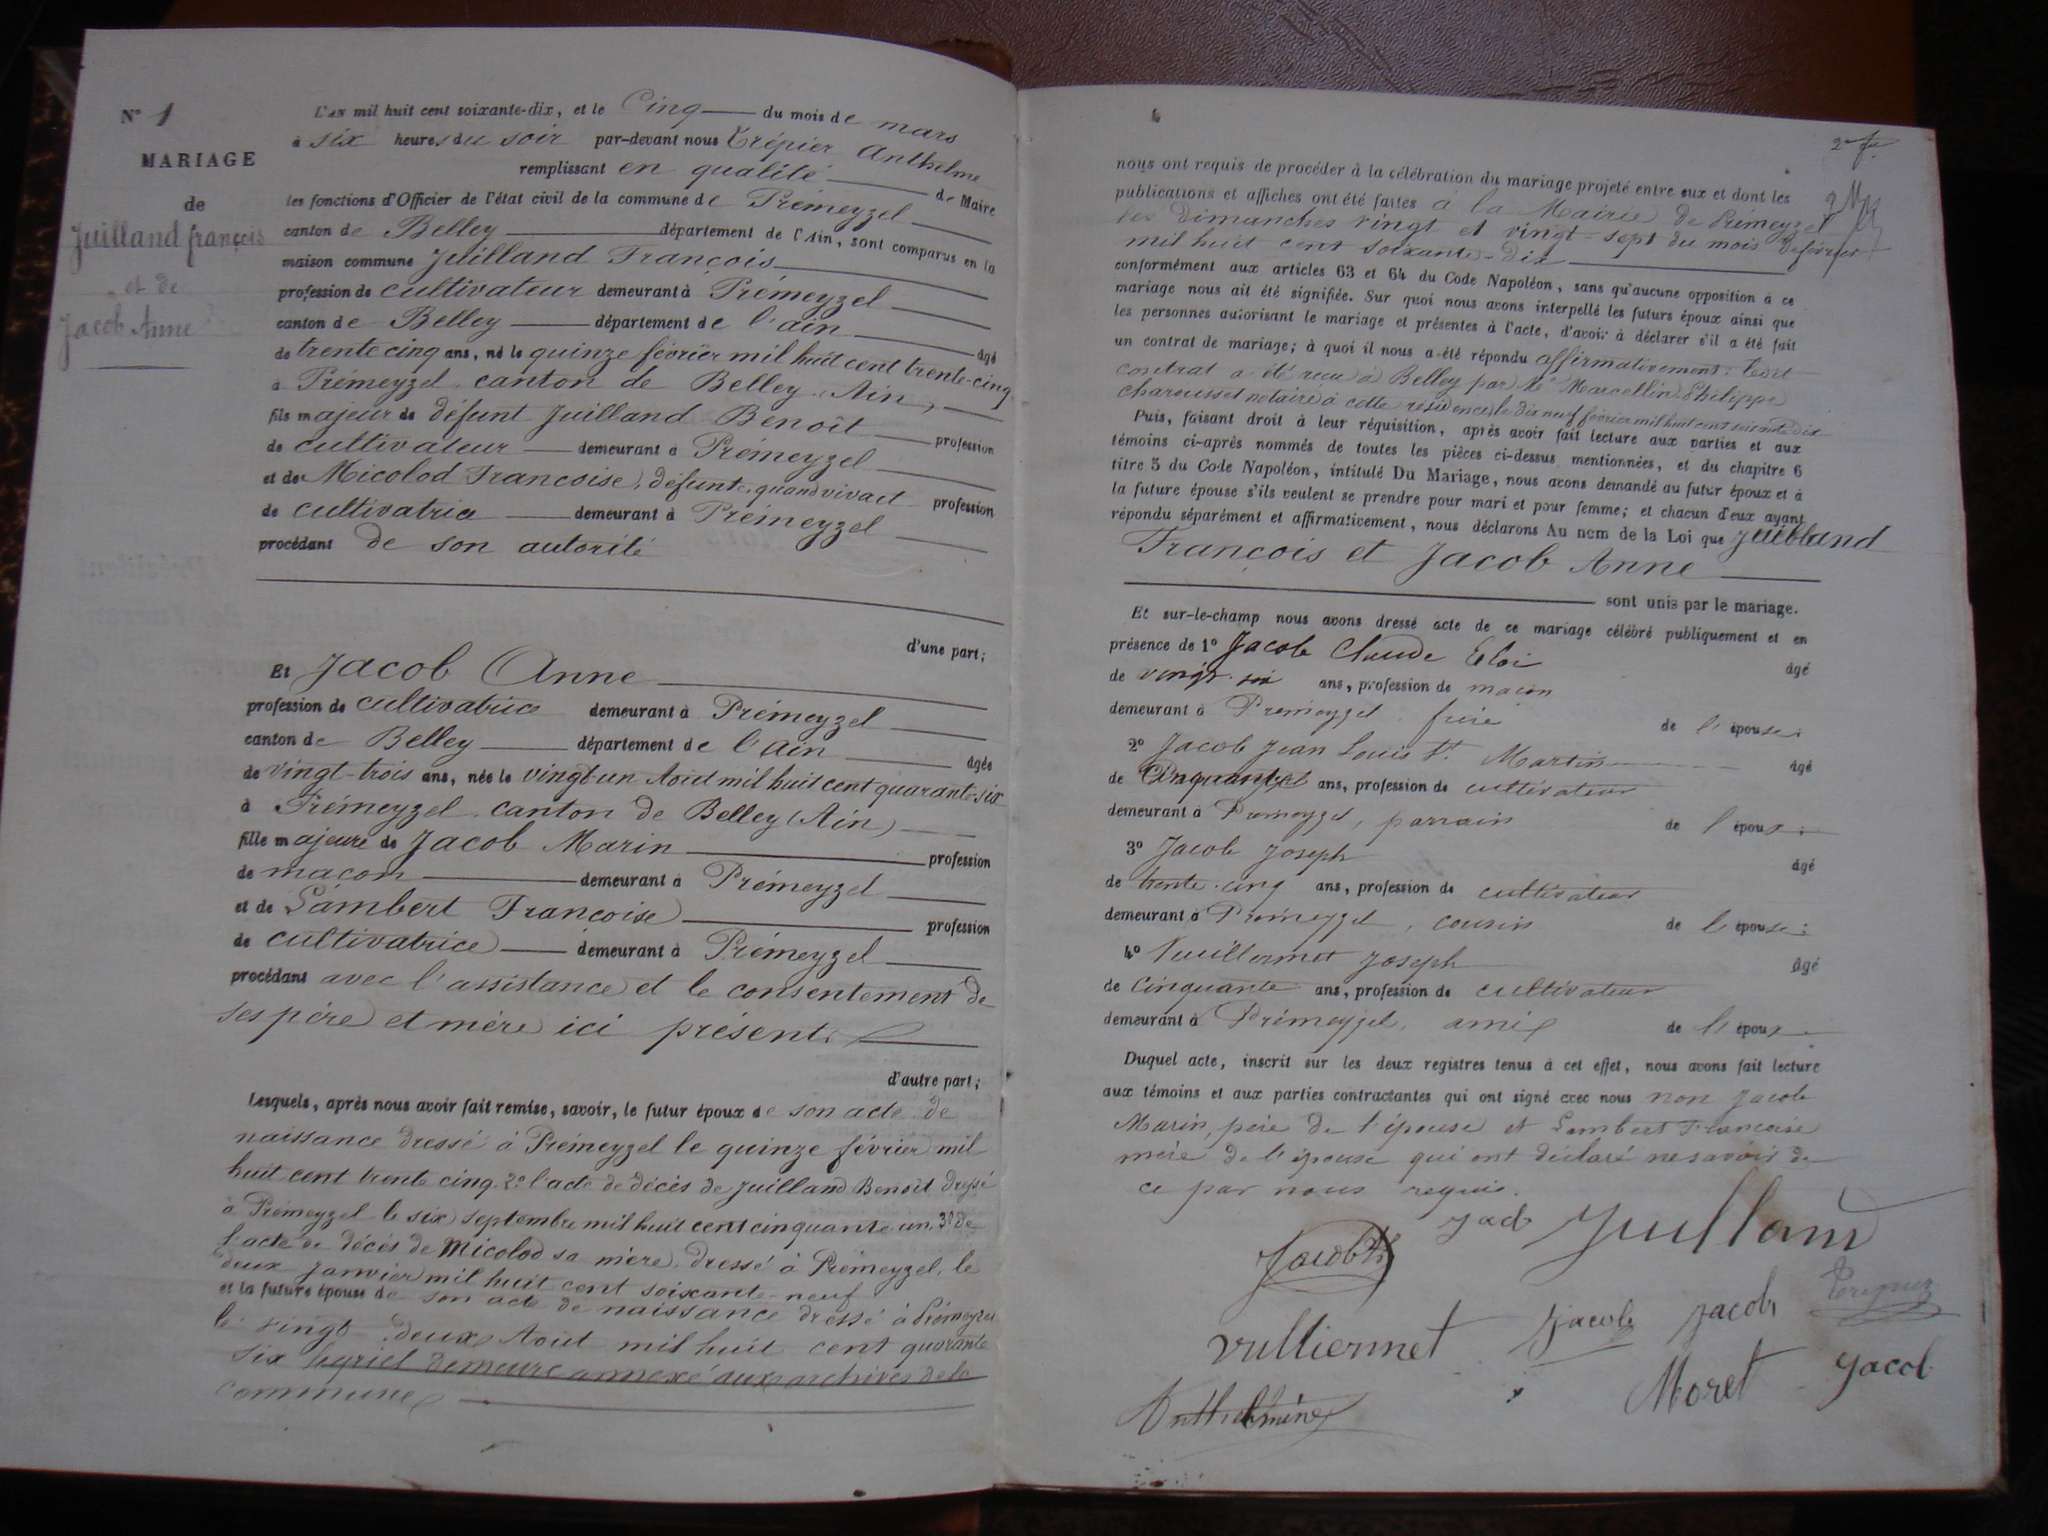 N° 1
MARIAGE
de
Juilland françois
et de
Jacob Anne
L'AN mil huit cent soixante-dix, et le Cinq du mois de mars
à six heures du soir par-devant nous Trépier Anthelme
remplissant en qualité de Maire
les fonctions d'Officier de l'état civil de la commune de Prémeyzel
canton de Belley département de l'Ain, sont comparus en la
maison commune Juilland François
profession de cultivateur demeurant à Prémeyzel
canton de Belley département de l'ain
âgé
de trente cinq ans, né le quinze février mil huit cent trente-cinq
à Prémeyzel canton de Belley (Ain)
fils majeur de défunt Juilland Benoît profession
de cultivateur demeurant à Prémeyzel
et de Micolod Francoise, défunte, quand vivait profession
de cultivatrice demeurant à Prémeyzel
procédant de son autorité
d'une part;
Et Jacob Anne
profession de cultivatrice demeurant à Prémeyzel
canton de Belley département de l'ain
âgée
de vingt-trois ans, née le vingt-un Aout mil huit cent quarante-six
à Prémeyzel canton de Belley (Ain)
fille majeure de Jacob Marin profession
de macon demeurant à Prémeyzel
et de Lambert Francoise profession
de cultivatrice demeurant à Prémeyzel
procédant avec l'assistance et le consentement de
ses père et mère ici présents
d'autre part;
Lesquels, après nous avoir fait remise, savoir, le futur époux de son acte de
naissance dressé à Prémeyzel le quinze février mil
huit cent trente cinq 2° l'acte de décès de Juilland Benoit dressé
à Prémeyzel le six septembre mil huit cent cinquante un 3° de
l'acte de décès de Micolod sa mère dressé à Prémeyzel, le
deux janvier mil huit cent soixante-neuf
et la future épouse de son acte de naissance dressé à Prémeyzel
le vingt-deux Aout mil huit cent quarante
six lequel demeure annexé aux archives de la
commune
2e f.
nous ont requis de procéder à la célébration du mariage projeté entre eux et dont les
publications et affiches ont été faites à la Mairie de Prémeyzel
les dimanches vingt et vingt-sept du mois de février
mil huit cent soixante-dix
conformément aux articles 63 et 64 du Code Napoléon, sans qu'aucune opposition à ce
mariage nous ait été signifiée. Sur quoi nous avons interpellé les futurs époux ainsi que
les personnes autorisant le mariage et présentes à l'acte, d'avoir à déclarer s'il a été fait
un contrat de mariage; à quoi il nous a été répondu affirmativement: ledit
contrat a été reçu à Belley par Me Marcellin Philippe
charousset notaire à cette résidence, le dix neuf février mil huit cent soixante dix
Puis, faisant droit à leur réquisition, après avoir fait lecture aux parties et aux
témoins ci-après nommés de toutes les pièces ci-dessus mentionnées, et du chapitre 6
titre 5 du Code Napoléon, intitulé Du Mariage, nous avons demandé au futur époux et à
la future épouse s'ils veulent se prendre pour mari et pour femme; et chacun d'eux ayant
répondu séparément et affirmativement, nous déclarons Au nom de la Loi que Juilland
François et Jacob Anne
sont unis par le mariage.
Et sur-le-champ nous avons dressé acte de ce mariage célébré publiquement et en
présence de 1° Jacob Claude Eloi âgé
de vingt-six ans, profession de macon
demeurant à Prémeyzel frère de l'épouse;
2° Jacob Jean Louis St. Martin âgé
de Cinquante ans, profession de cultivateur
demeurant à Prémeyzel, parrain de l'époux;
3° Jacob Joseph âgé
de trente-cinq ans, profession de cultivateur
demeurant à Prémeyzel, cousin de l'épouse;
4° Vuillermet Joseph âgé
de Cinquante ans, profession de cultivateur
demeurant à Prémeyzel, ami de l'époux
Duquel acte, inscrit sur les deux registres tenus à cet effet, nous avons fait lecture
aux témoins et aux parties contractantes qui ont signé avec nous non Jacob
Marin, père de l'épouse et Lambert Francoise
mère de l'épouse qui ont déclaré ne savoir de
ce par nous requis.
Jacob Juilland
Jacob
Vulliermet Jacob Jacob
Moret Jacob
Anthelme